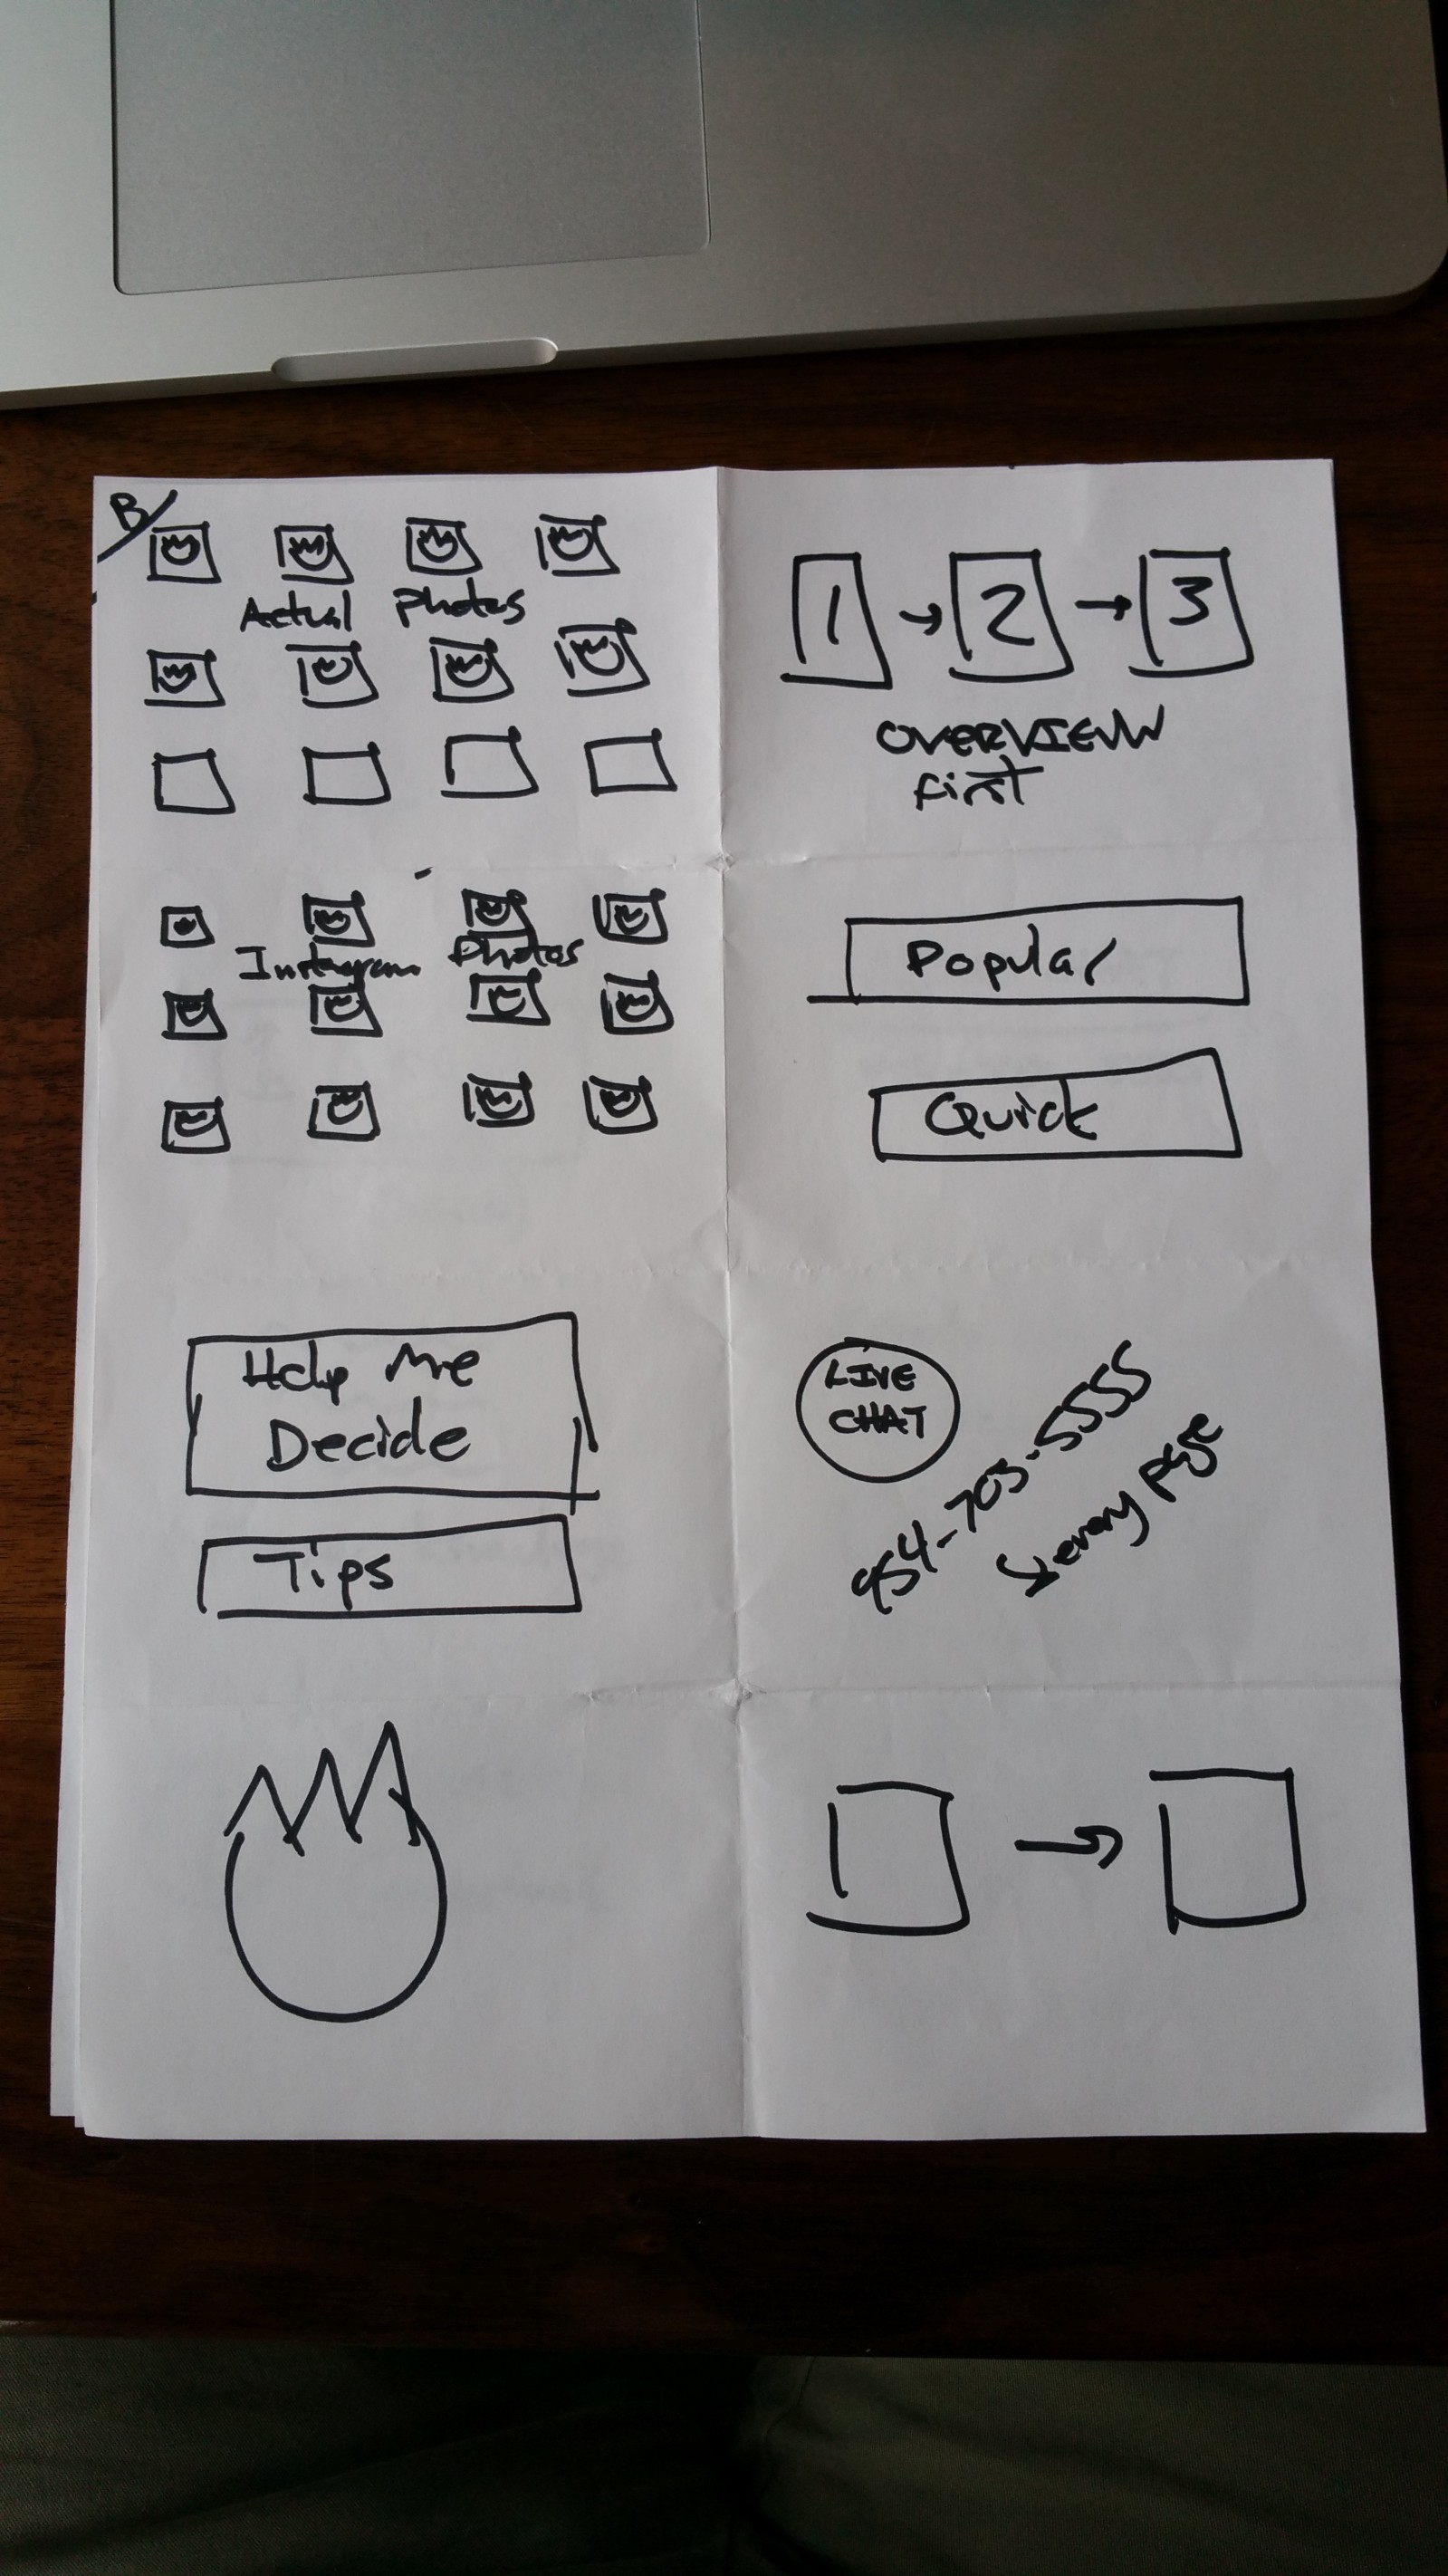 B/
Actual Photos
1 → 2 → 3
OVERVIEW
first
Instagram Photos
Popular
Quick
Help Me
Decide
Tips
LIVE
CHAT
954-703-5555
↳ every page